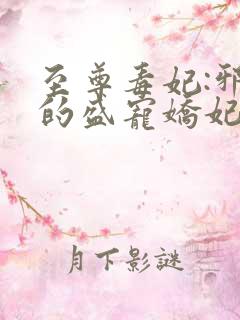 至尊毒妃:邪
的盛寵嬌妃
月下影謎